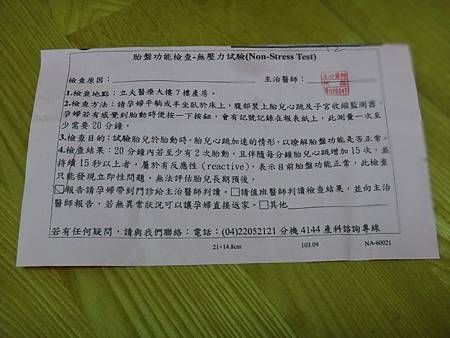 胎盤功能檢查-無壓力試驗(Non-Stress Test)
檢查原因：
主治醫師：
1.檢查地點：立夫醫療大樓7樓產房。
2.檢查方法：請孕婦平躺或半坐臥於床上，腹部繫上胎兒心跳及子宮收縮監測器。
孕婦若有感覺到胎動時便按一下按鈕，會有記號記錄在報表紙上，此測量一次至
少需要20分鐘。
3.檢查目的：試驗胎兒於胎動時，胎兒心跳加速的情形，以瞭解胎盤功能是否正常。
4.檢查結果：20分鐘內若至少有2次胎動，且伴隨每分鐘胎兒心跳增加15次，並
持續15秒以上者，屬於有反應性(reactive)，表示目前胎盤功能正常，此檢查
只能發現立即性問題，無法評估胎兒長期預後。
☑報告請孕婦帶到門診給主治醫師判讀。□請值班醫師判讀檢查結果，並向主治
醫師報告，若無異常狀況可以讓孕婦直接返家。□其他
若有任何疑問，請與我們聯絡：電話：(04)22052121 分機 4144 產科諮詢專線
21×14.8cm 103.09 NA-60021